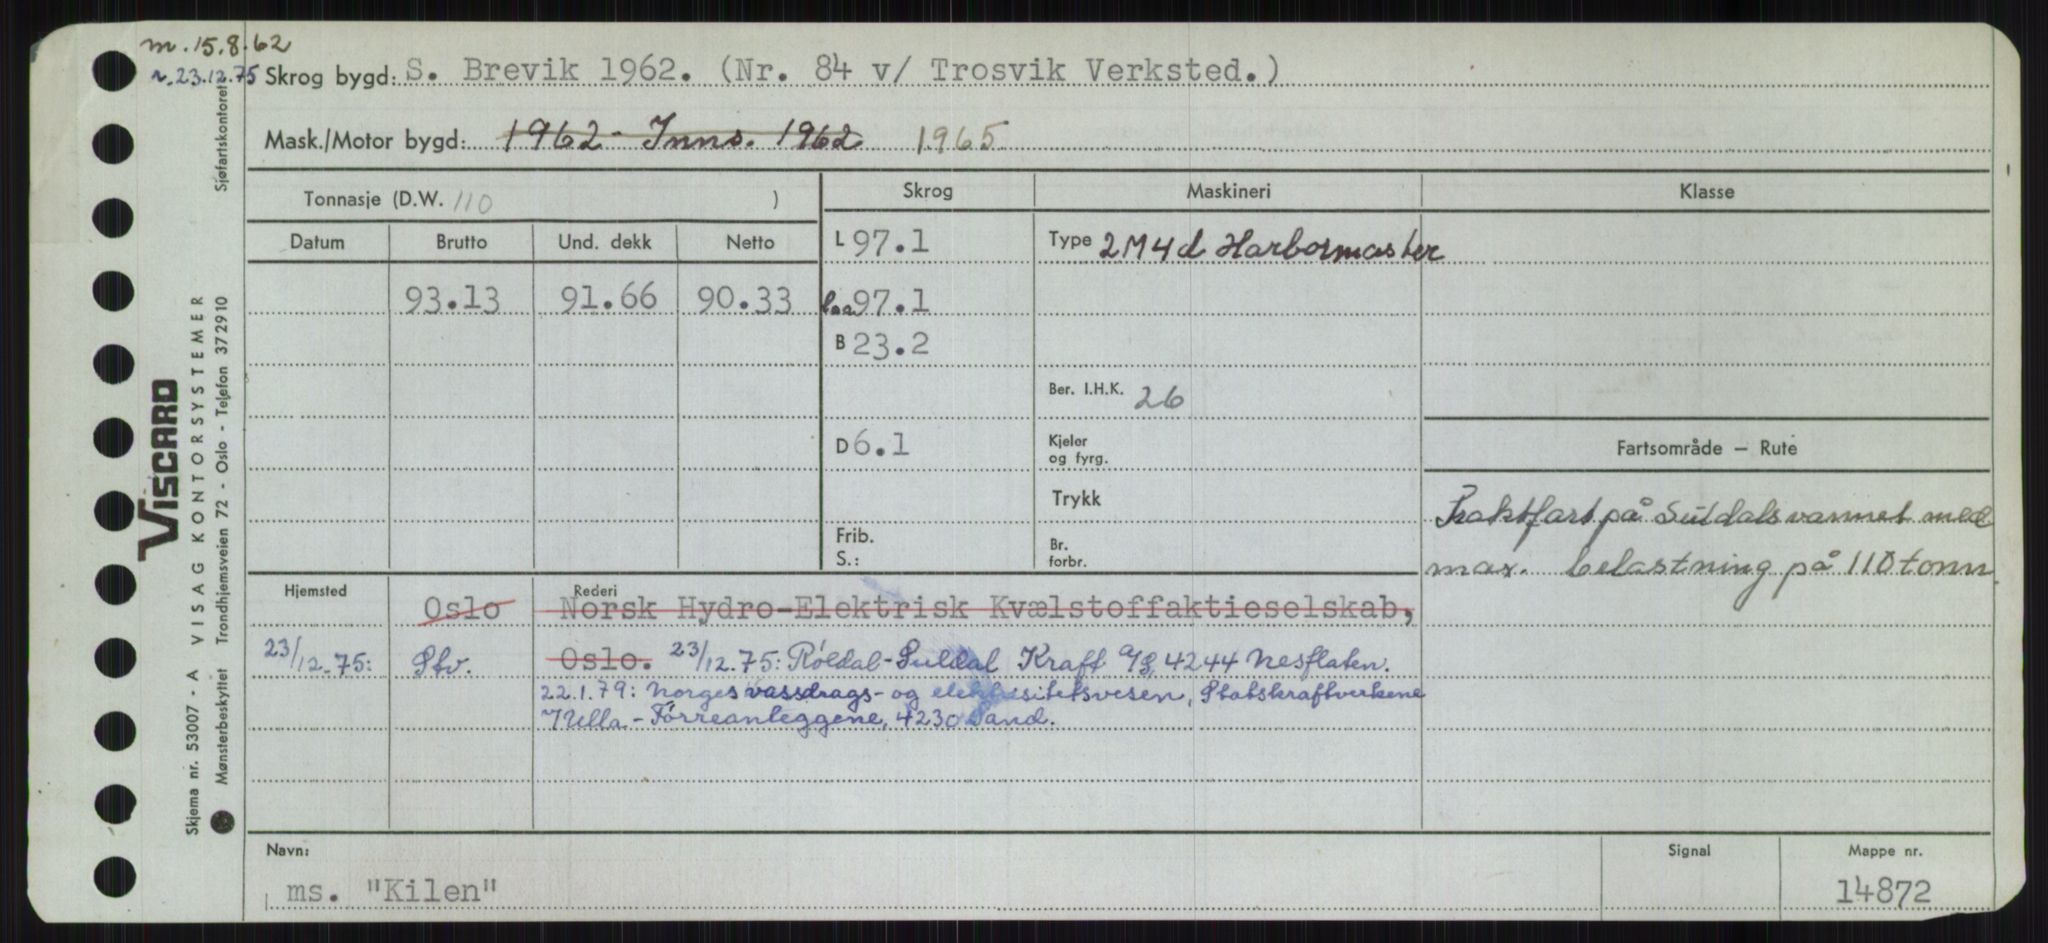 m. 15.8.62
r. 23.12.75 Skrog bygd: S. Brevik 1962. (Nr. 84 v/ Trosvik Verksted.)
Mask./Motor bygd: 1962 - Inns. 1962 1965
Tonnasje (D.W. 110 ) Skrog Maskineri Klasse
Datum Brutto Und. dekk Netto L 97.1 Type 2M4d Harbormaster
93.13 91.66 90.33 loa 97.1
B 23.2
Ber. I.H.K. 26
D 6.1 Kjeler og fyrg. Fartsområde — Rute
Trykk Fraktfart på Suldalsvannet med
Frib. S.: Br. forbr. max. belastning på 110 tonn
Hjemsted Rederi
Oslo Norsk Hydro-Elektrisk Kvælstoffaktieselskab,
23/12-75: Stv. Oslo. 23/12.75: Røldal-Suldal Kraft A/S, 4244 Nesflaten.
22.1.79: Norges vassdrags- og elektrisitetsvesen, Statskraftverkene
/Ulla-Førreanleggene, 4230 Sand.
Navn: Signal Mappe nr.
ms. "Kilen" 14872
VISCARD
Skjema nr. 53007 - A VISAG KONTORSYSTEMER
Mønsterbeskyttet Trondhjemsveien 72 - Oslo - Telefon 372910 Sjøfartskontoret